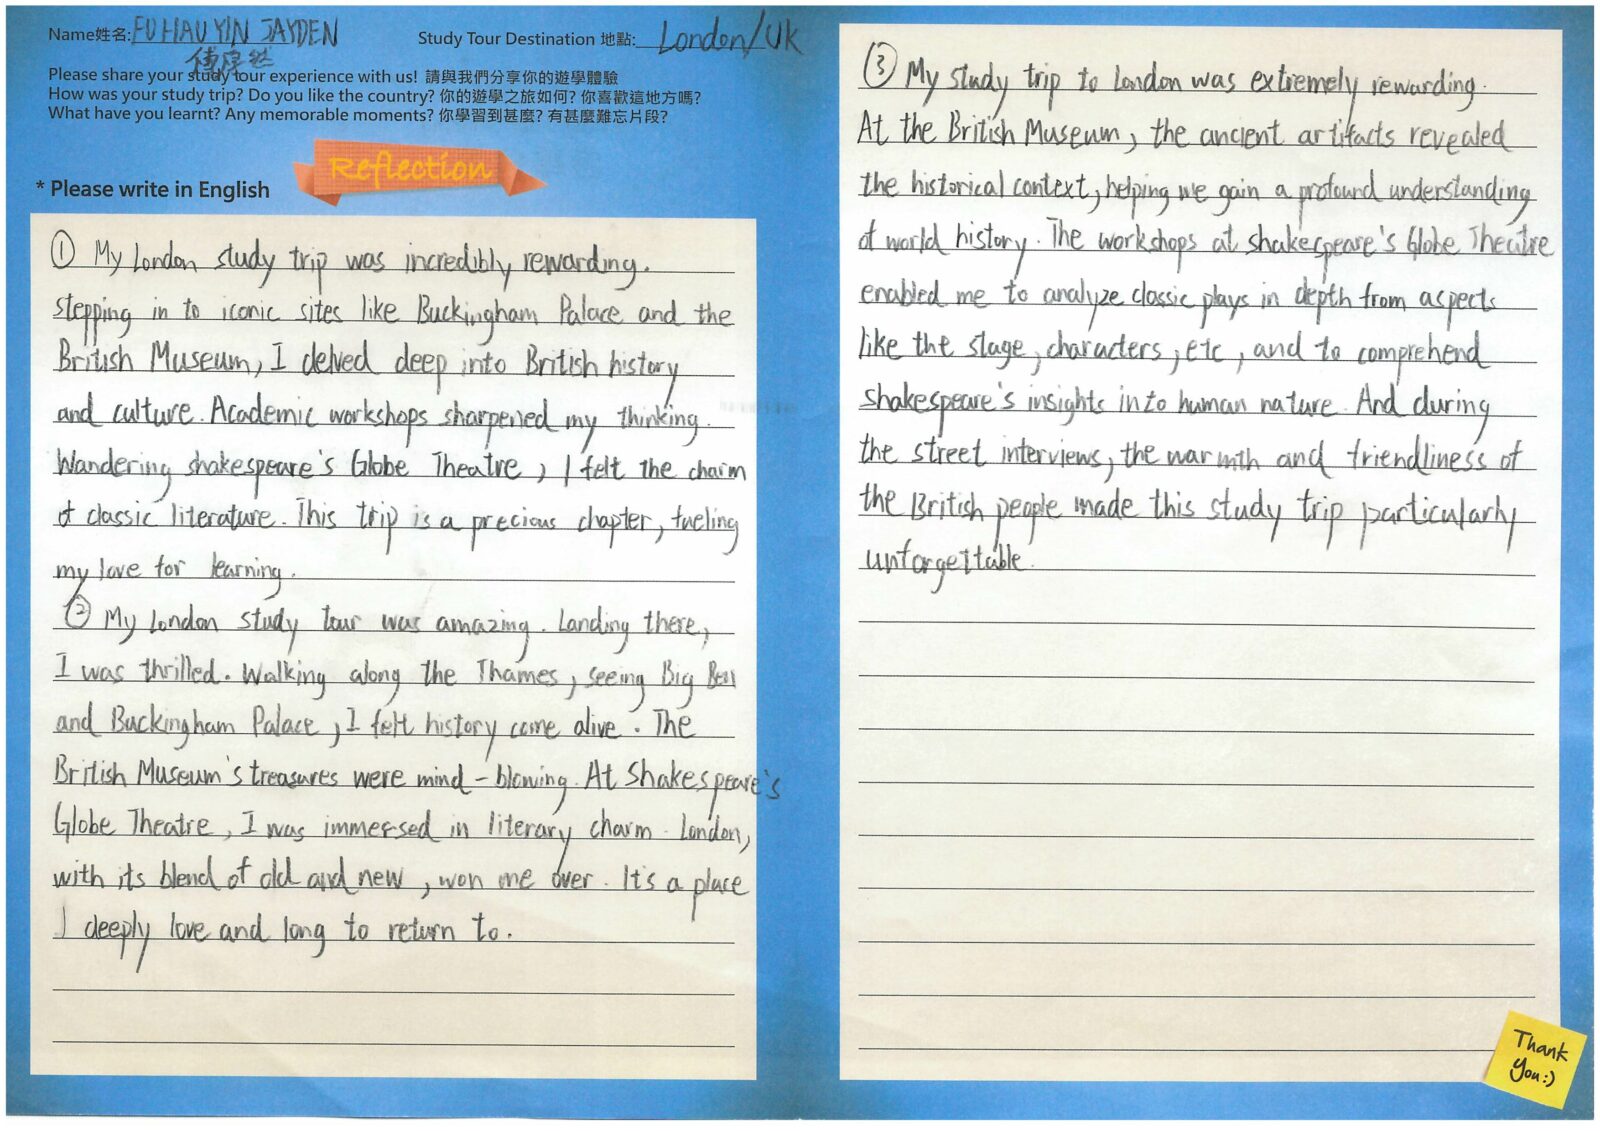 Name姓名: FU HAU YIN JAYDEN
Study Tour Destination 地點: London/UK
傅厚然
Please share your study tour experience with us! 請與我們分享你的遊學體驗
How was your study trip? Do you like the country? 你的遊學之旅如何? 你喜歡這地方嗎?
What have you learnt? Any memorable moments? 你學習到甚麼? 有甚麼難忘片段?
Reflection
* Please write in English
① My London study trip was incredibly rewarding.
stepping in to iconic sites like Buckingham Palace and the
British Museum, I delved deep into British history
and culture. Academic workshops sharpened my thinking.
Wandering shakespeare's Globe Theatre, I felt the charm
of classic literature. This trip is a precious chapter, fueling
my love for learning.
② My London study tour was amazing. Landing there,
I was thrilled. Walking along the Thames, seeing Big Ben
and Buckingham Palace, I felt history come alive. The
British Museum's treasures were mind-blowing. At Shakespeare's
Globe Theatre, I was immersed in literary charm. London,
with its blend of old and new, won me over. It's a place
I deeply love and long to return to.
③ My study trip to London was extremely rewarding.
At the British Museum, the ancient artifacts revealed
the historical context, helping me gain a profound understanding
of world history. The workshops at shakespeare's Globe Theatre
enabled me to analyze classic plays in depth from aspects
like the stage, characters, etc, and to comprehend
shakespeare's insights into human nature. And during
the street interviews, the warmth and friendliness of
the British people made this study trip particularly
unforgettable.
Thank
You:)